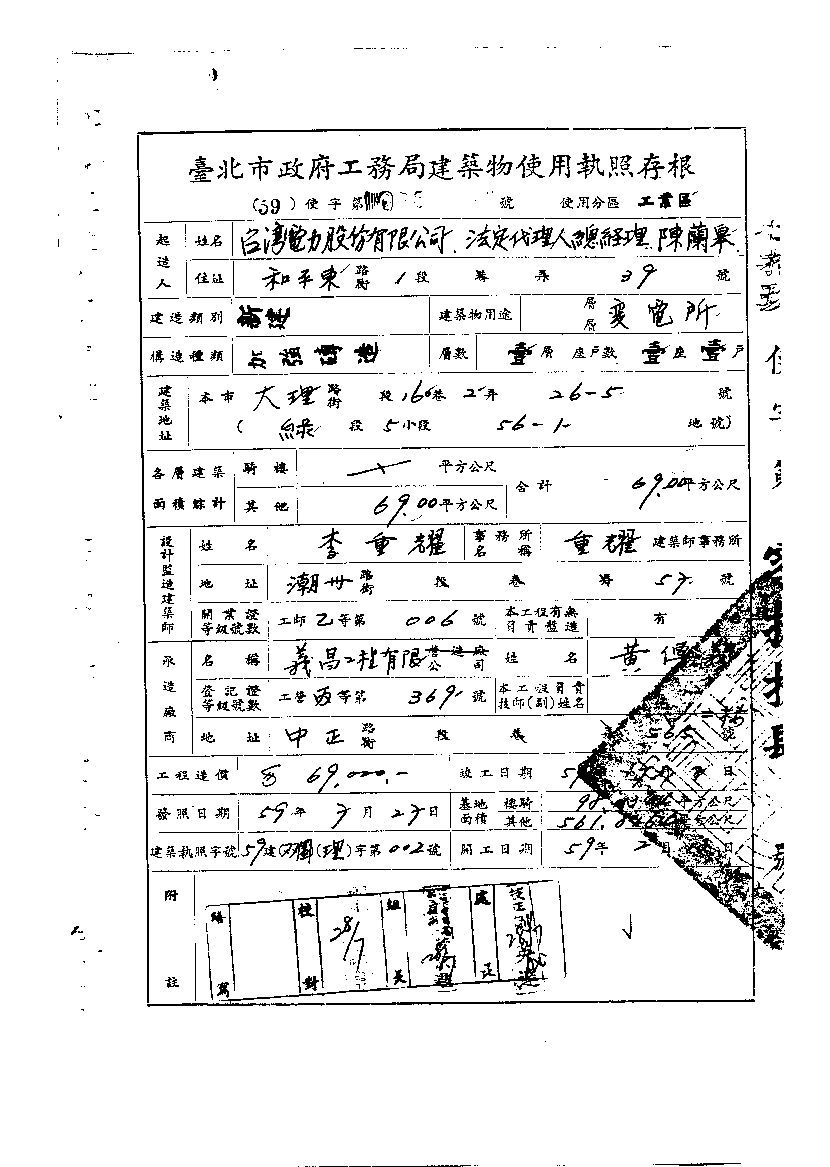 臺北市政府工務局建築物使用執照存根
(59) 使字第 號 使用分區 工業區
起造人 姓名 台灣電力股份有限公司、法定代理人總經理 陳蘭皋
住址 和平東 路街 1 段 巷 弄 39 號
建造類別 新建 建築物用途 層層 变電所
構造種類 加强磚造 層數 壹層 座戶數 壹座 壹戶
建築地址 本市 大理 路街 段 160 巷 2 弄 26-5 號
( 綠 段 5 小段 56-1 地號)
各層建築面積綜計 騎樓 平方公尺 合計 69.00 平方公尺
其他 69.00 平方公尺
設計監造建築師 姓名 李重耀 事務所名稱 重耀 建築師事務所
地址 潮州 路街 段 巷 弄 57 號
開業證等級號數 工師 乙 等第 006 號 本工程有無負責監造 有
承造廠商 名稱 義昌工程有限 營造廠公司 姓名 黃
登記證等級號數 工營 丙 等第 369 號 本工程負責技師(副)姓名
地址 中正 路街 段 巷 565 號
工程造價 69,000.- 竣工日期 59 日
發照日期 59 年 7 月 27 日 基地面積 騎樓 98. 平方公尺
其他 561. 平方公尺
建築執照字號 59 建(双園)(理)字第 002 號 開工日期 59 年 2 月 日
附註
繕寫 校對 28/7 組長 處正 技正